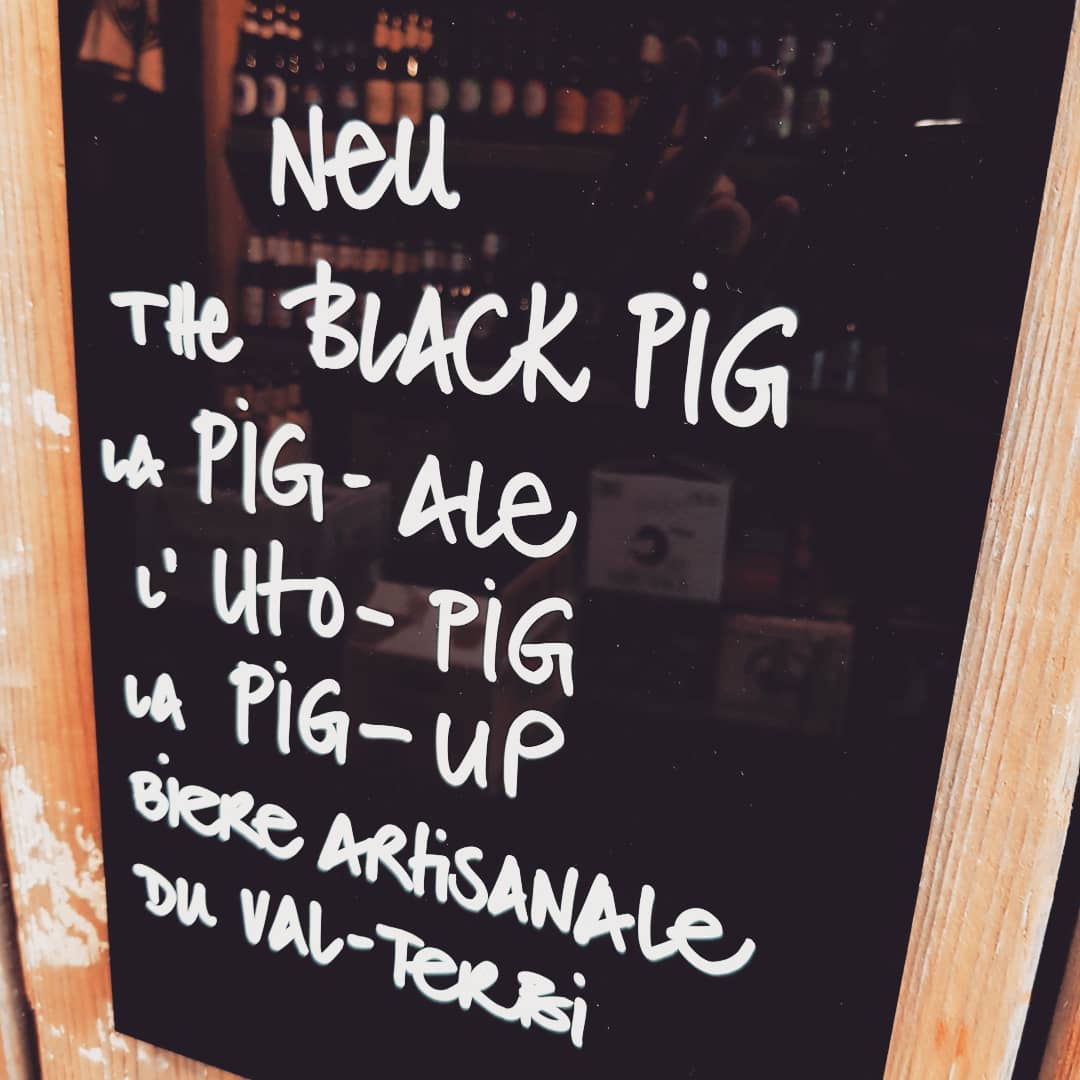 Neu
THe BLACK PiG
LA PiG-ALe
L'UtO-PiG
LA PiG-UP
BieRe ARtiSANALe
DU VAL-TeRBi